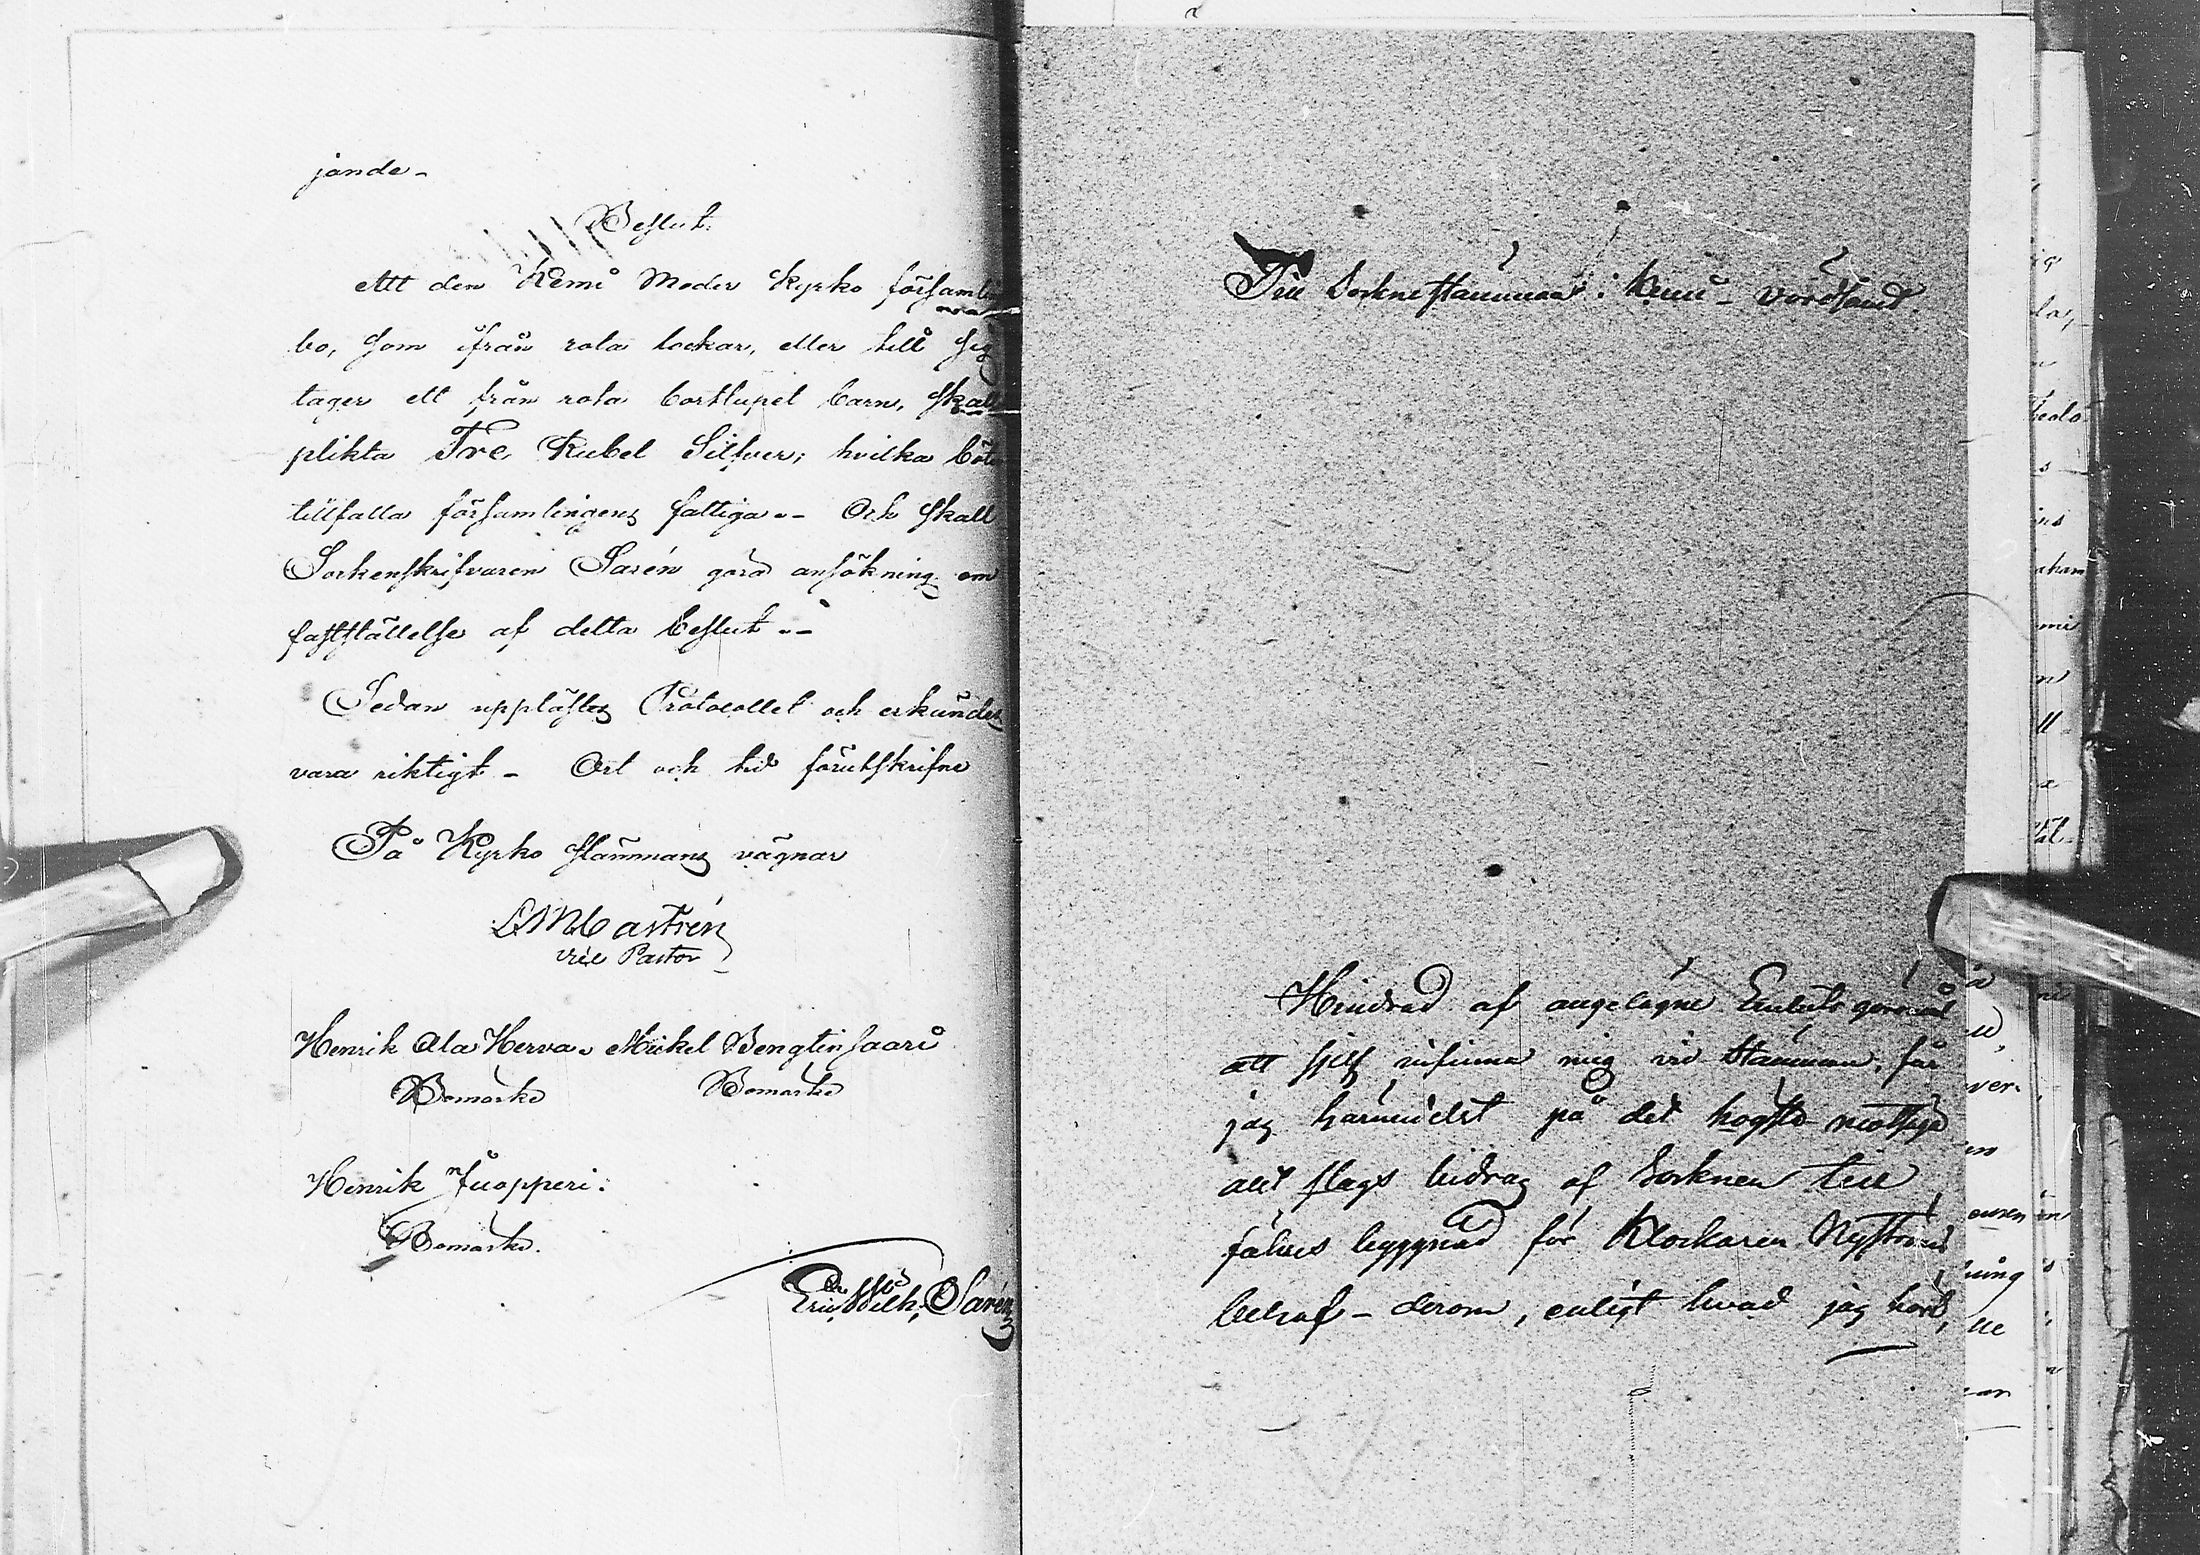 jande -
Beslut.
Att den Kemi Moder Kyrko församlings
bo, som ifrån rota lockar, eller till sig
tager ett från rota bortlupet barn, skall
plikta Tre Rubel Silfver; hvilka böter
tillfalla församlingens fattiga.- Och skall
Sockenskrifvaren Sarén göra ansökning om
fastställelse af detta beslut.-
Sedan upplästes Protocollet och erkändes
vara riktigt - Ort och tid förutskrifne
På Kyrko stämmans vägnar
LMCastrén
vice Pastor
Henrik Ala Herva. Mickel Bengtinsaari
Bomärke Bomärke
Henrik Juopperi.
Bomärke.
Eric Wilh. Sarén
Till Sockne stämman i Kemi - vördsamt.
Hindrad af angelägne Embets göromål
att sjelf infinna mig vid Stämman, får
jag härmedelst på det högsta motsäga
allt slags bidrag af Socknen till
fähus byggnad för Klockaren Nyströms
behof - derom, enligt hvad jag hört,